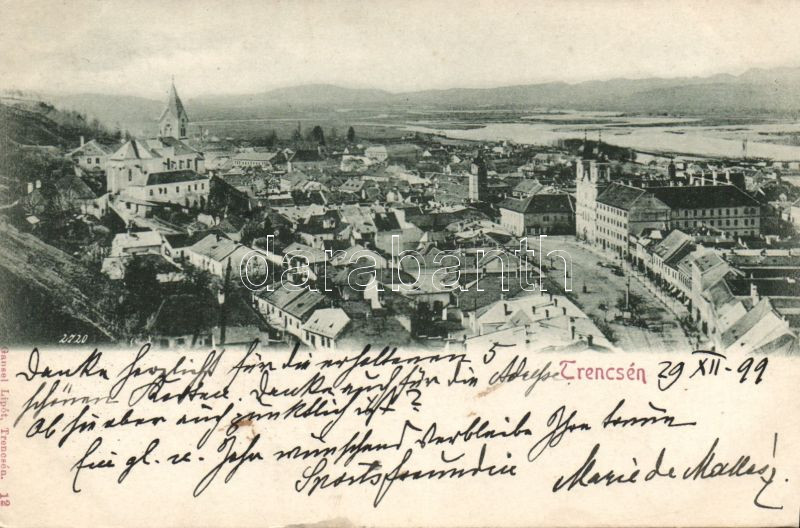 darabanth.com
2720
Trencsén
29 XII - 99
Gansel Lipót, Trencsén. 12
Danke herzlichst für die erhaltenen 5
schönen Karten. Danke auch für die Adresse
Ob sie aber auch pünktlich ist?
Ein gl. n. Jahr wünschend verbleibe Ihre treue
Sportsfreundin Marie de